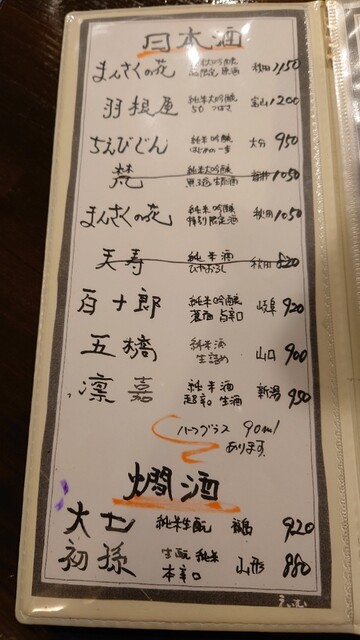 日本酒
まんさくの花 大吟醸 秋田 1150
限定 原酒
羽根屋 純米大吟醸 富山 1200
50 つばさ
ちえびじん 純米吟醸 大分 950
はじめの一歩
梵 純米大吟醸 福井 1050
無濾過生原酒
まんさくの花 純米吟醸 秋田 1050
特別限定酒
天寿 純米酒 秋田 820
ひやおろし
百十郎 純米吟醸 岐阜 920
旨辛口
五橋 純米酒 山口 900
生詰め
凛嘉 純米酒 新潟 950
超辛口 生酒
ハーフグラス 90ml
あります。
燗酒
大七 純米生酛 福島 920
初孫 生酛 純米 山形 880
本辛口